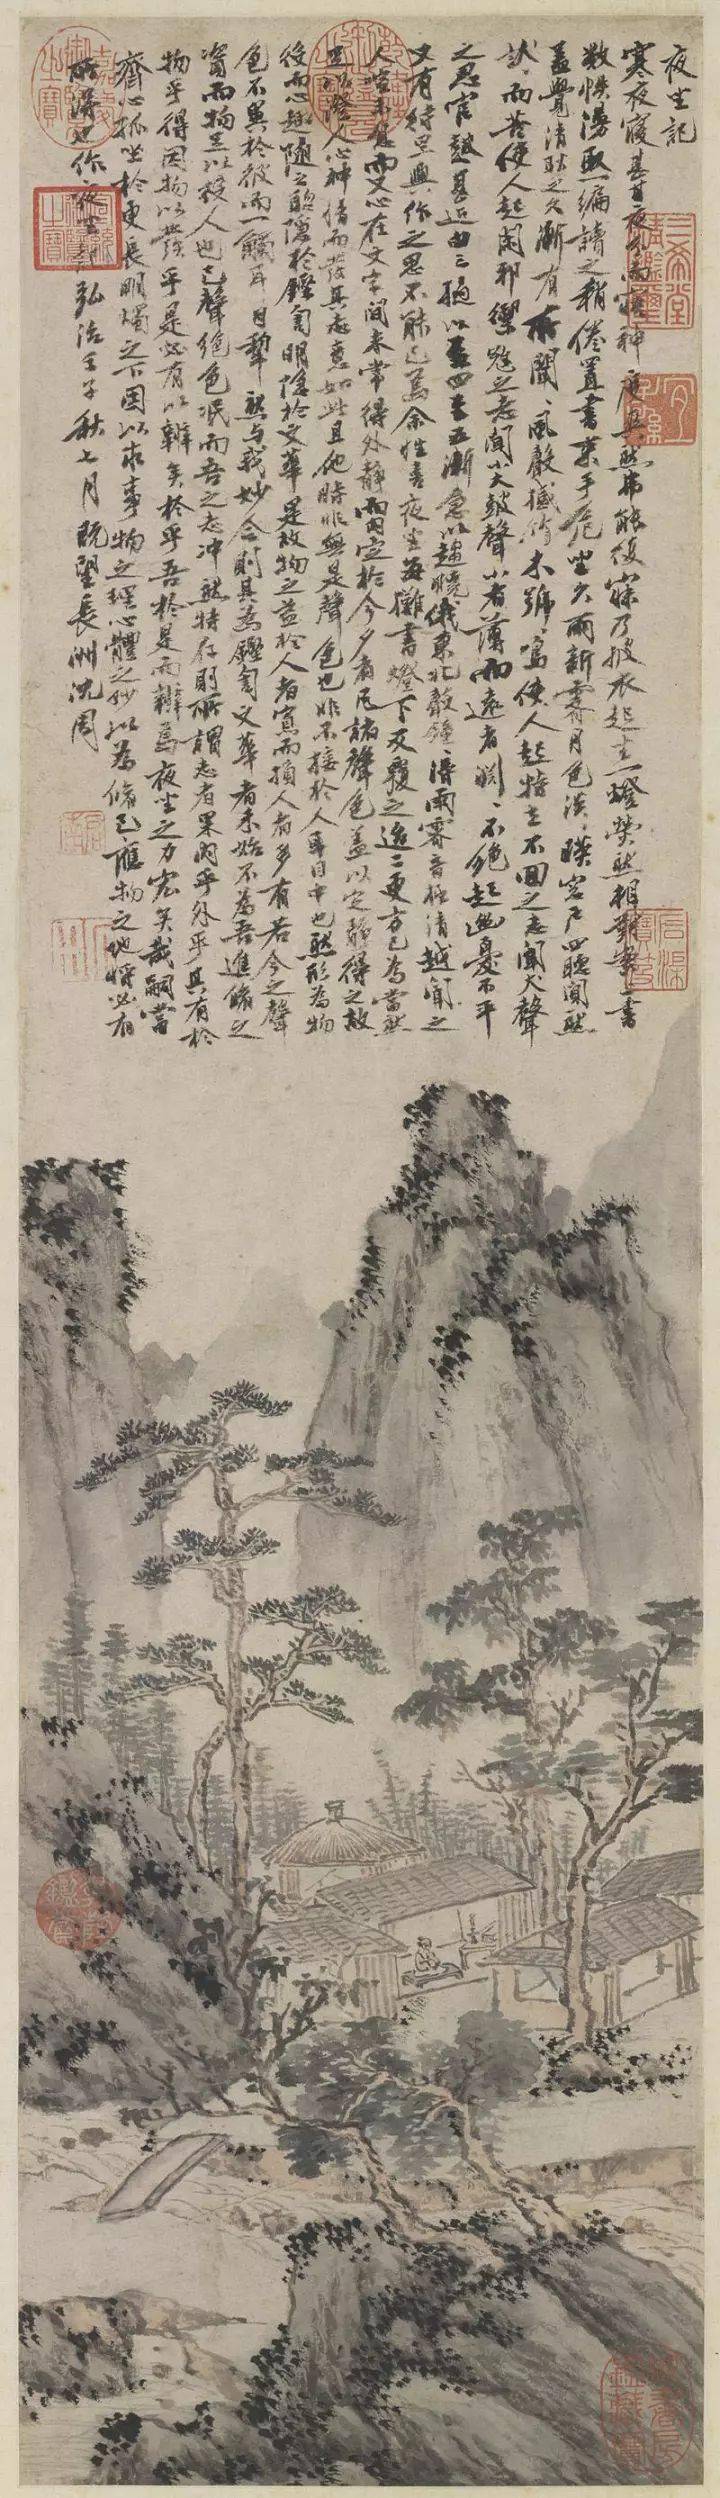 夜坐記
寒夜寢甚甘夜分而寤神度爽然弗能復寐乃披衣起坐一燈熒然相對案上書
數帙漫取一編讀之稍倦置書束手危坐久雨新霽月色淡淡映窗戶四聽闃然
蓋覺清耿之久漸有所聞聞風聲撼竹木號號鳴使人起特立不回之志聞犬聲
狀狀而苦使人起閑邪禦寇之志聞小大鼓聲小者薄而遠者淵淵不絕起幽憂不平
之思官鼓甚近由三撾以至四至五漸急以趨曉俄東北聲鐘鐘得雨霽音極清越聞之
又有待旦興作之思不能已焉余性喜夜坐每攤書燈下反覆之迨二更方已為當然
人喧未息而又心在文字間未常得外靜而內定於今夕者凡諸聲色蓋以定靜得之故
足以澄人心神情而發其志意如此且他時非無是聲色也非不接於人耳目中也然形為物
役而心趣隨之聰隱於鏗訇明隱於文華是故物之益於人者寡而損人者多有若今之聲
色不異於彼而一觸耳目犁然與我妙合則其為鏗訇文華者未始不為吾進修之
資而物足以役人也已聲絕色泯而吾之志冲然特存則所謂志者果內乎外乎其有於
物乎得因物以發乎是必有以辨矣於乎吾於是而辨焉夜坐之力宏矣哉嗣當
齊心孤坐於更長明燭之下因以求事物之理心體之妙以為修己應物之地將必有
所得也作夜坐記弘治壬子秋七月既望長洲沈周
三希堂精鑑璽
宜子孫
石渠寶笈
乾隆御覽之寶
嘉慶御覽之寶
宣統御覽之寶
啟南
乾隆鑑賞
御書房鑑藏寶